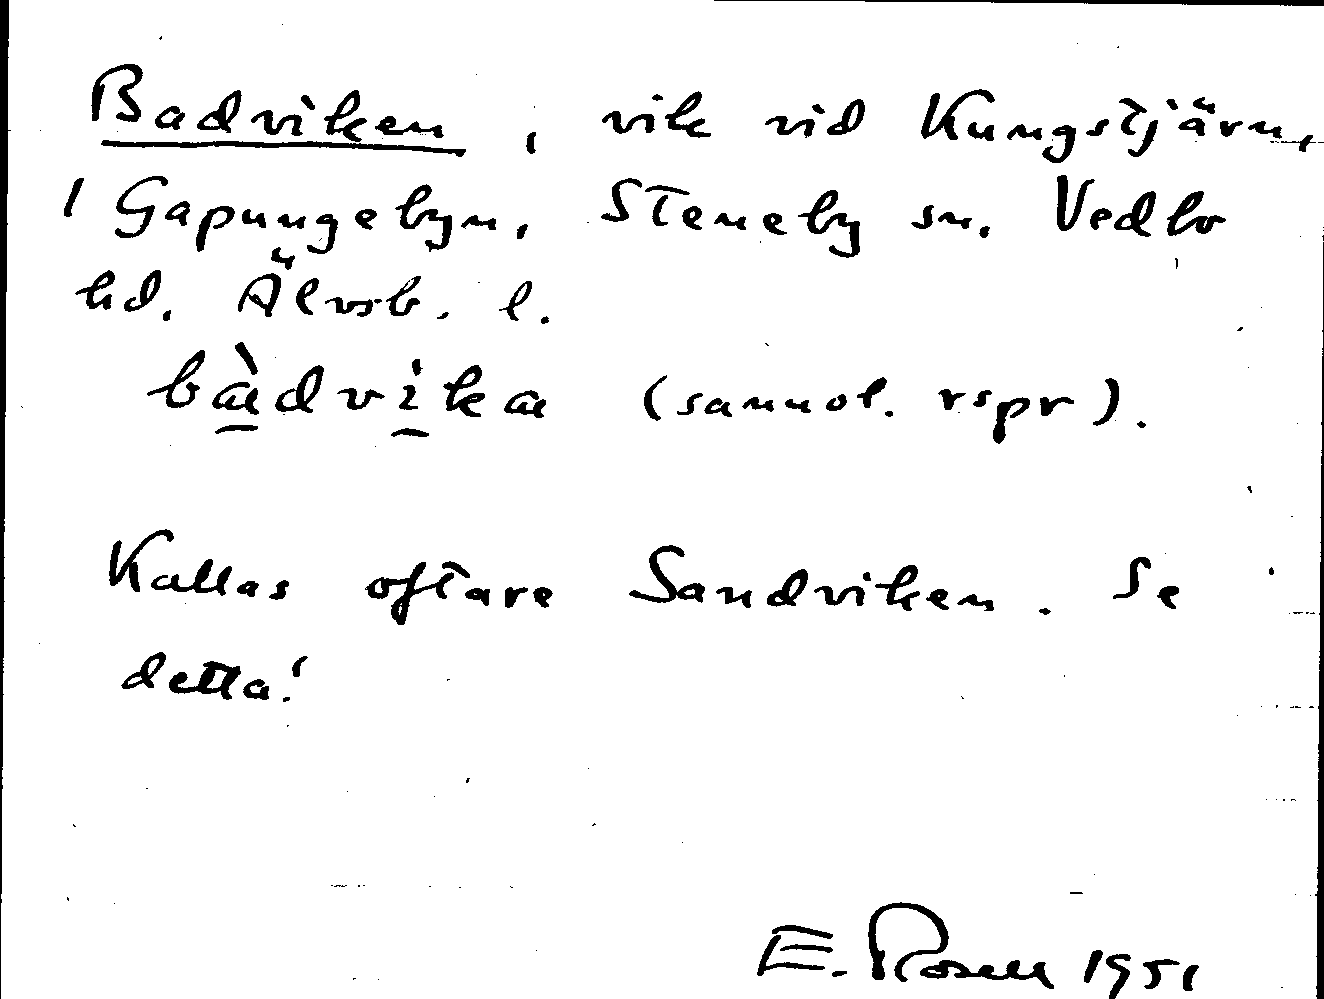 Badviken, vik vid Kungstjärn,
i Gapungebyn, Steneby sn. Vedbo
hd. Älvsb. l.
bàdvika (sannol. rspr).
Kallas oftare Sandviken. Se
detta!
E. Rosell 1951